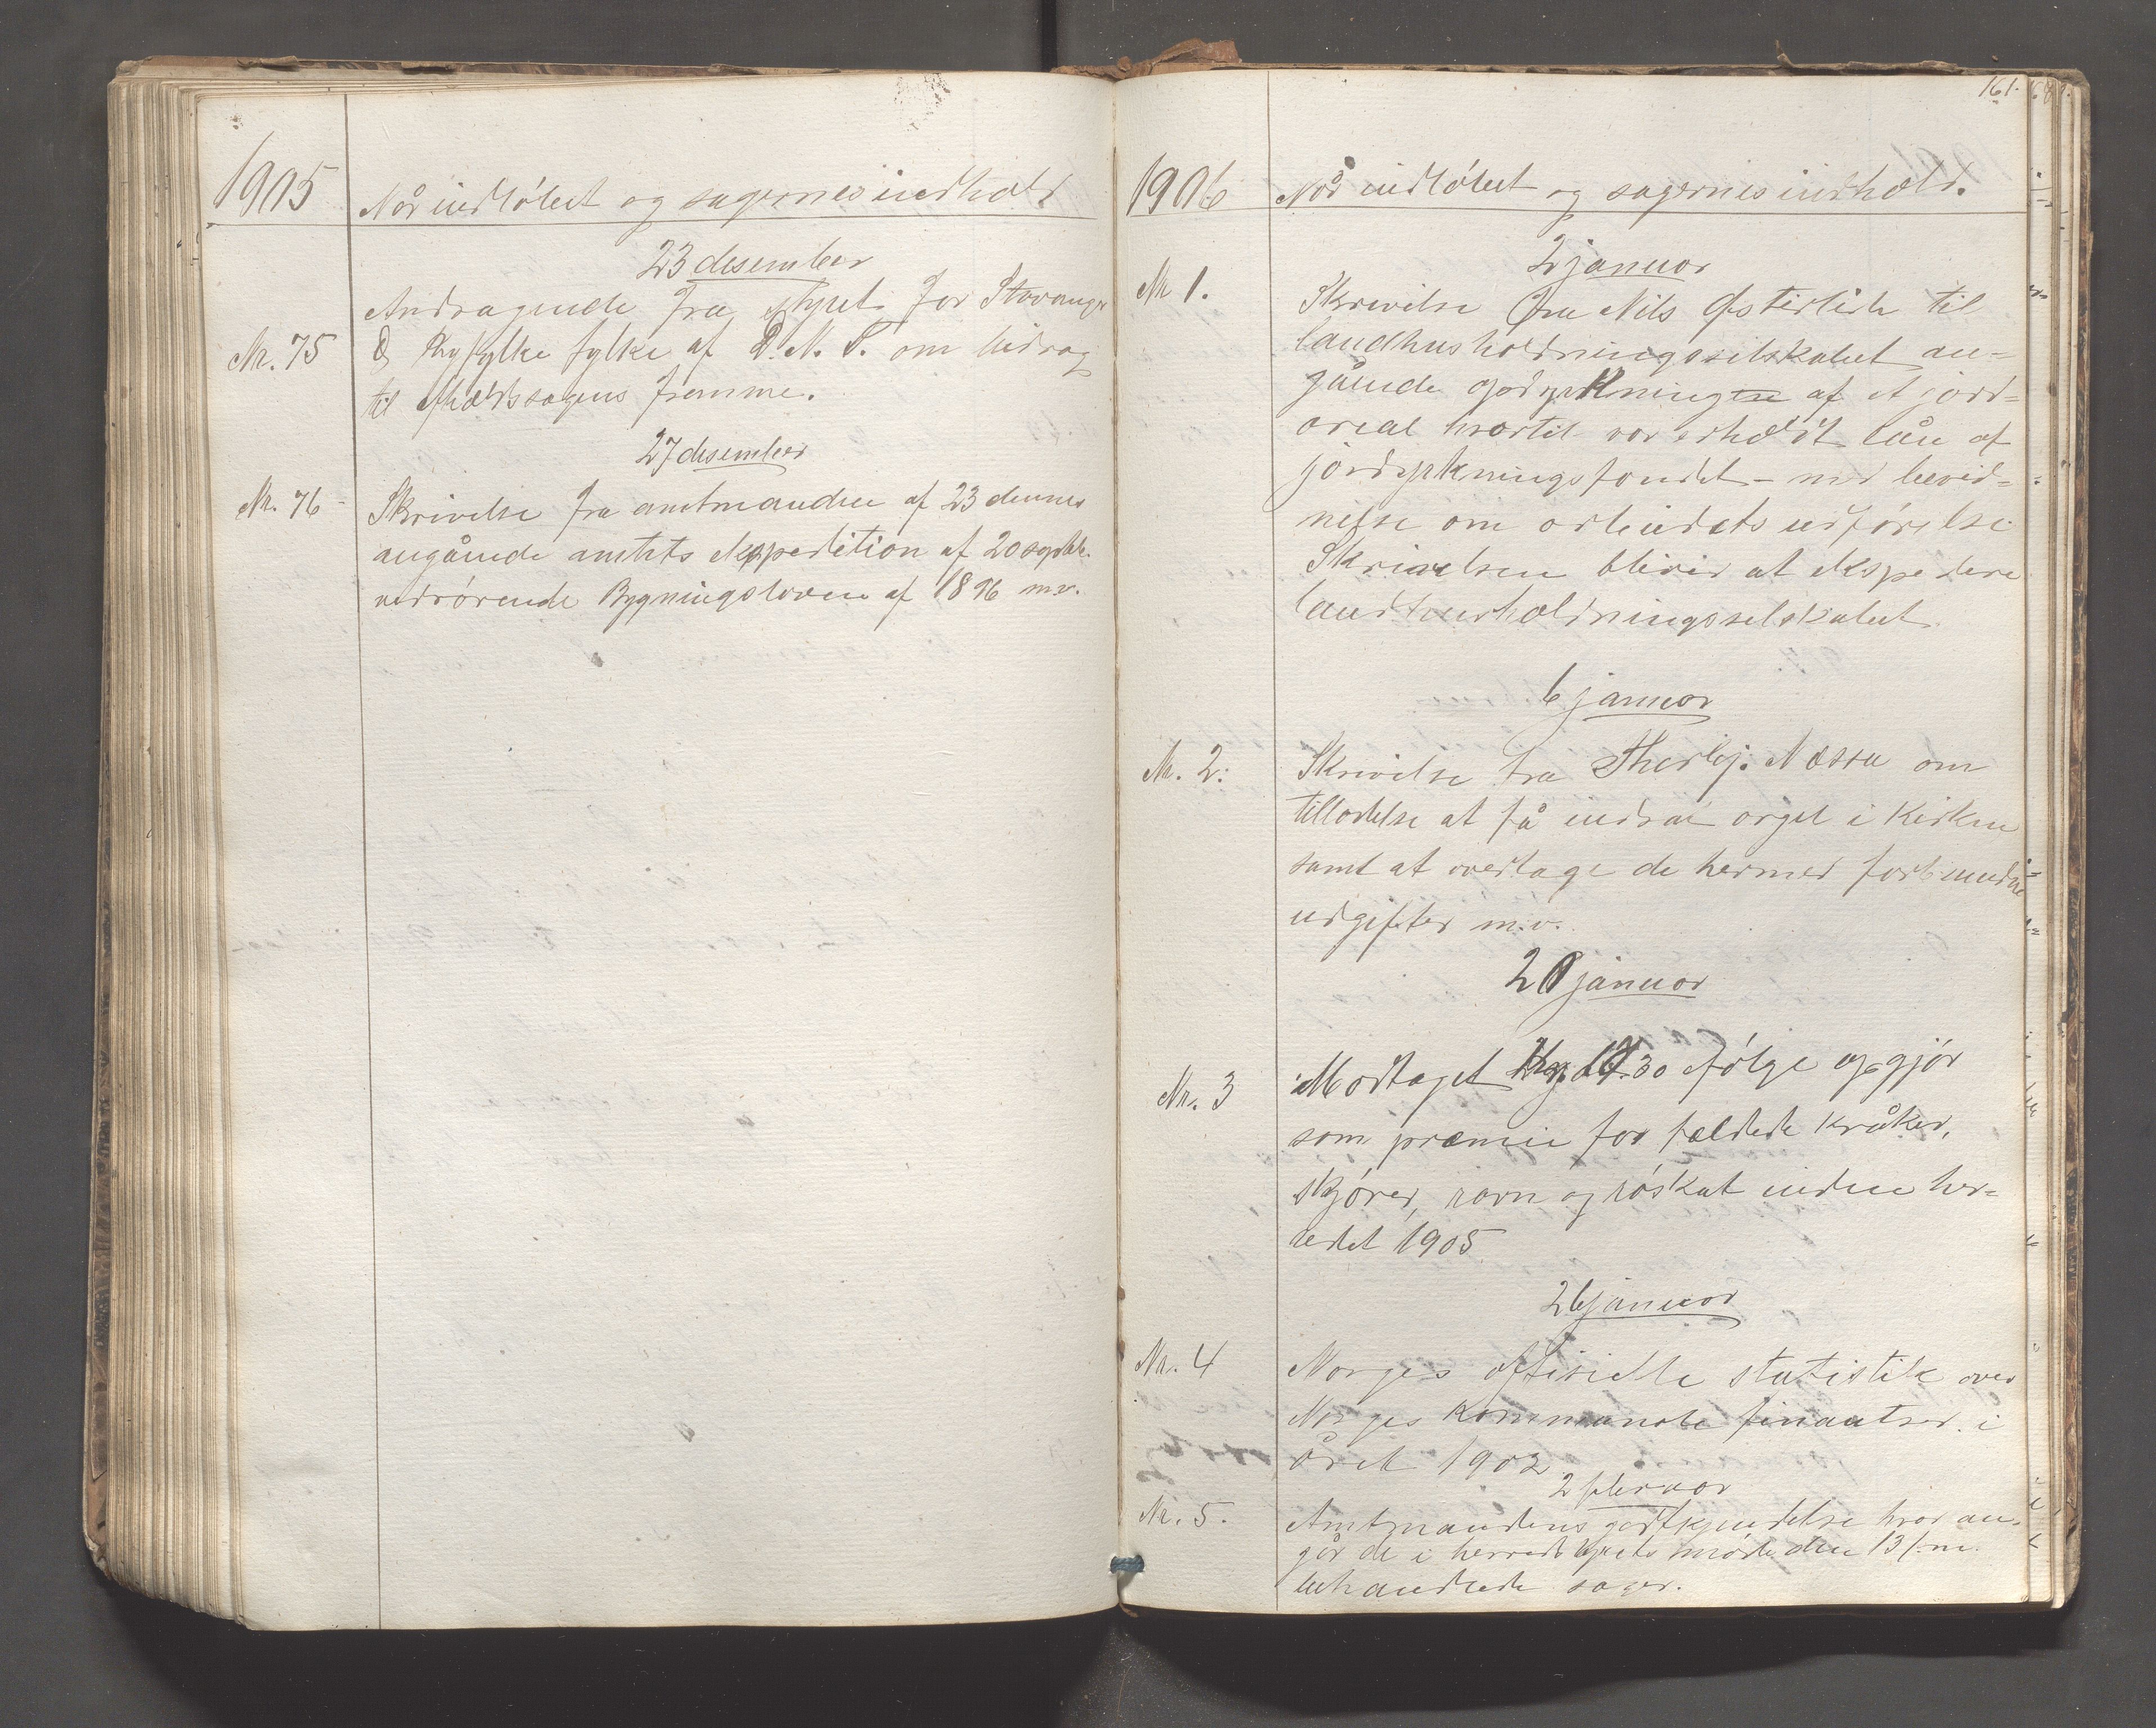 1905
Når indløbet og sagernes indhold
23 desember
Andragende fra styret for Stavanger
Nr. 75
& Ryfylke fylke af D. N. T. om bidrag
til afholdssagens fremme.
27 desember
Nr. 76
Skrivelse fra amtmanden af 23 dennes
angående amtets ekspedition af 20 septbr.
vedrørende Bygningsloven af 1896 m.v.
161.
1906
Når indløbet og sagernes indhold.
2 januar
Nr 1.
Skrivelse fra Nils Østerlide til
landhusholdningsselskabet an=
gående opdyrkning af et jord=
areal hvortil var erholdt lån af
jorddyrkningsfondet - med bevid=
nelse om arbeidets udførelse.
Skrivelsen blever at ekspedere
landhusholdningsselskabet.
6 januar
Nr. 2.
Skrivelse fra Thorbj. Næssa om
tilladelse at få indsat orgel i Kirken
samt at overtage de hermed forbundne
udgifter m.v.
20 januar
Nr. 3
Modtaget 30 følge opgjør
som præmie for fældede kråker,
skjører, ravn og røskat inden her=
redet 1905
26 januar
Nr. 4
Norges offisielle statistik over
Norges kommunale finantser i
året 1902
2 februar
Nr. 5.
Amtmandens godkjendelse hvad an=
går de i herredstyrets møde den 13 f. m.
behandlede sager.